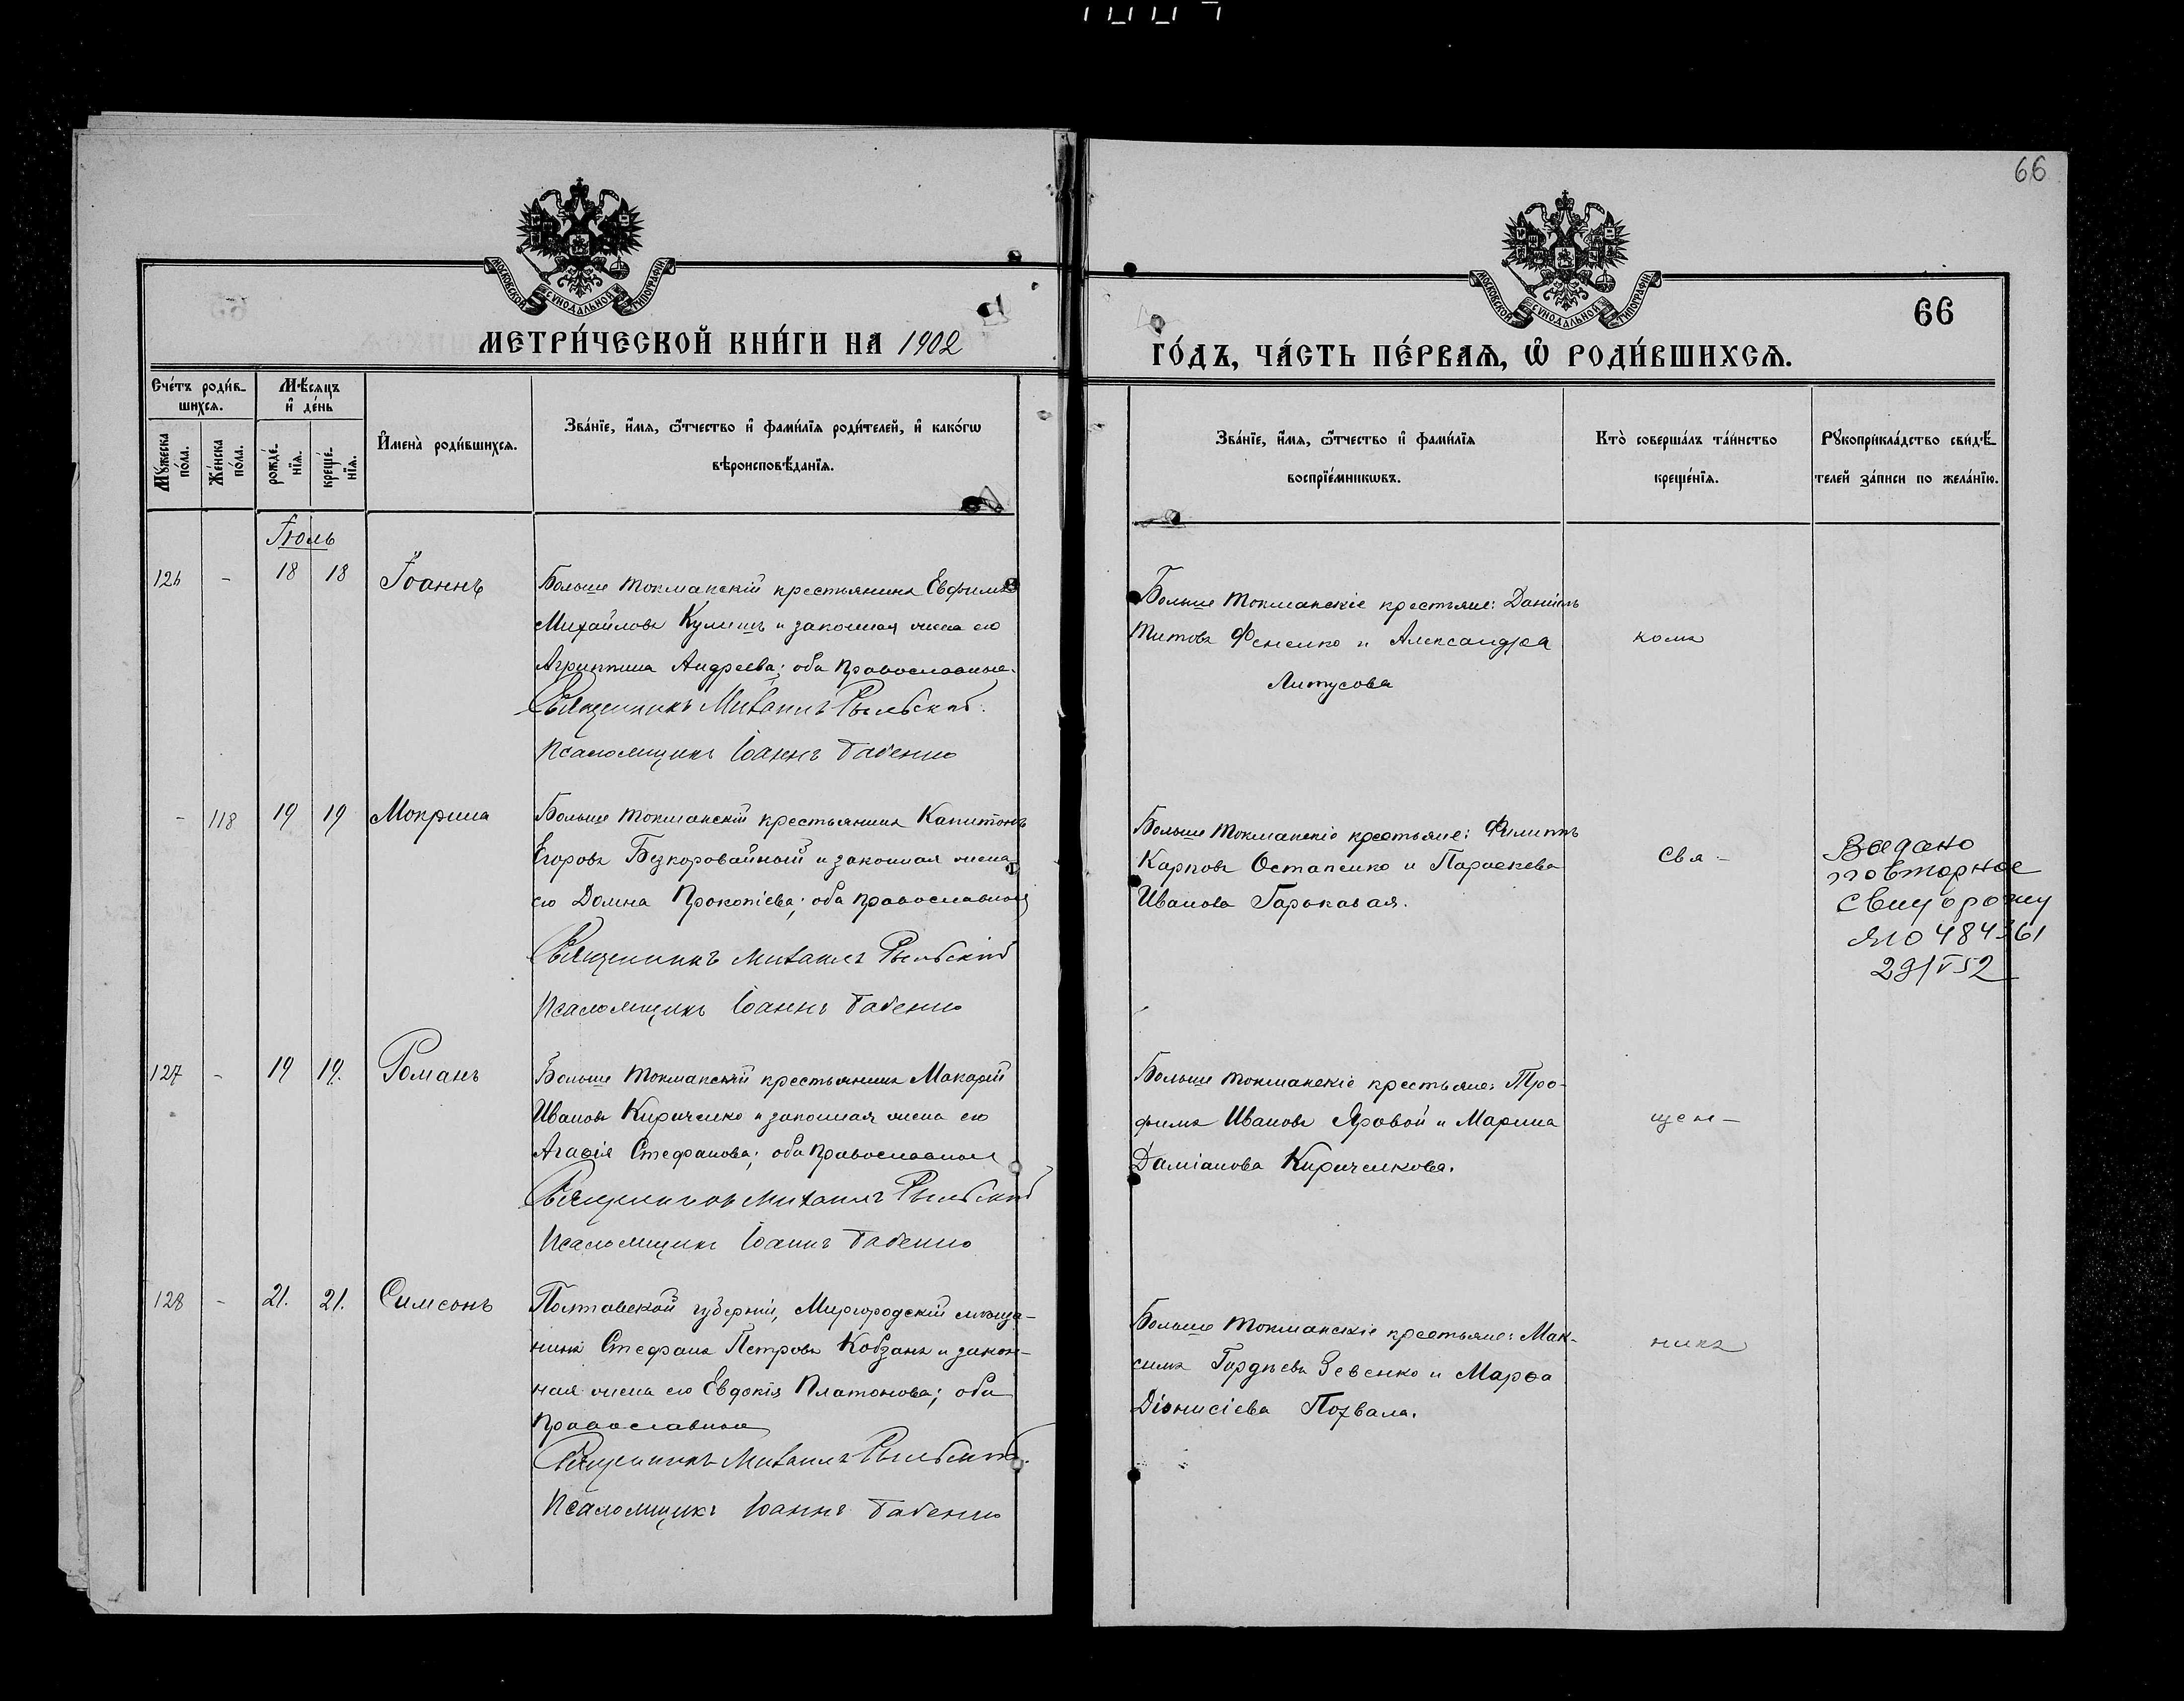 66
МОСКОВСКОЙ СУНОДАЛЬНОЙ ТИПОГРАФІИ
МОСКОВСКОЙ СУНОДАЛЬНОЙ ТИПОГРАФІИ
66
МЕТРИ́ЧЕСКОЙ КНИ́ГИ НА 1902
ГО́ДЪ, ЧА́СТЬ ПЕ́РВАѦ, Ѡ҆ РОДИ́ВШИХСѦ.
Сче́тъ роди́в-
шихсѧ.
Мѣ́сѧцъ
и҆ де́нь
Мꙋ́жеска
по́ла.
Же́нска
по́ла.
рожде́-
нїѧ.
креще́-
нїѧ.
И҆мена̀ роди́вшихсѧ.
Зва́нїе, и҆́мѧ, ѻ҆́тчество и҆ фами́лїѧ роди́телей, и҆ како́гѡ
вѣроисповѣ́данїѧ.
Зва́нїе, и҆́мѧ, ѻ҆́тчество и҆ фами́лїѧ
воспрїе́мникѡвъ.
Кто̀ соверша́лъ та́инство
креще́нїѧ.
Рꙋкоприкла́дство свидѣ́-
телей за́писи по жела́нїю.
Іюль
126 - 18 18 Іоаннъ
Больше Токмакскій крестьянинъ Евфимъ
Михайловъ Кулишъ и законная жена его
Агриппина Андреева; оба Православные.
Священникъ Михаилъ Рыльскій.
Псаломщикъ Іоаннъ Бабенко
Больше Токмакскіе крестьяне: Даніилъ
Титовъ Фененко и Александра
Литусова
комъ
- 118 19 19 Мокрина
Больше Токмакскій крестьянинъ Капитонъ
Егоровъ Безкоровайный и законная жена
его Домна Прокопіева; оба православные
Священникъ Михаилъ Рыльскій
Псаломщикъ Іоаннъ Бабенко
Больше Токмакскіе крестьяне: Филиппъ
Карповъ Остапенко и Параскева
Иванова Горькавая.
Свя-
Выдано
повторное
свид о рожд
ЯЮ 484361
29/V 52
127 - 19 19. Романъ
Больше Токмакскій крестьянинъ Макарій
Ивановъ Кириченко и законная жена его
Агафія Стефанова; оба Православные
Священникъ Михаилъ Рыльскій
Псаломщикъ Іоаннъ Бабенко
Больше Токмакскіе крестьяне: Тро-
фимъ Ивановъ Яровой и Марина
Даміанова Кириченкова.
щен-
128 - 21. 21. Симеонъ
Полтавской губерніи, Миргородскій мѣща-
нинъ Стефанъ Петровъ Кобзанъ и закон-
ная жена его Евдокія Платонова; оба
Православные
Священникъ Михаилъ Рыльскій.
Псаломщикъ Іоаннъ Бабенко
Больше Токмакскіе крестьяне: Мак-
симъ Гордѣевъ Зевенко и Марѳа
Діонисіева Похвала.
никъ